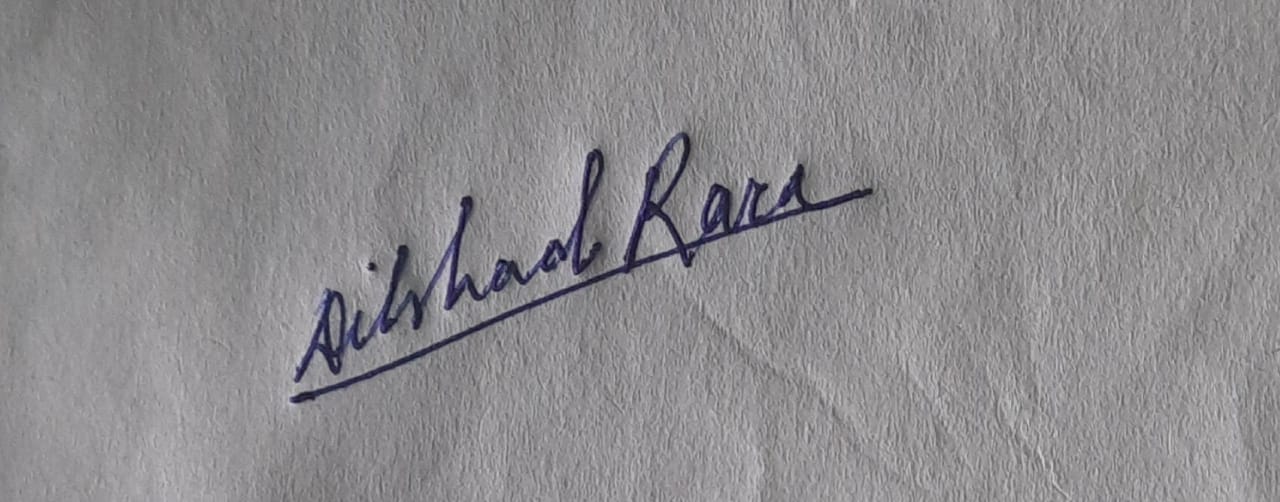 Dilshad Raza